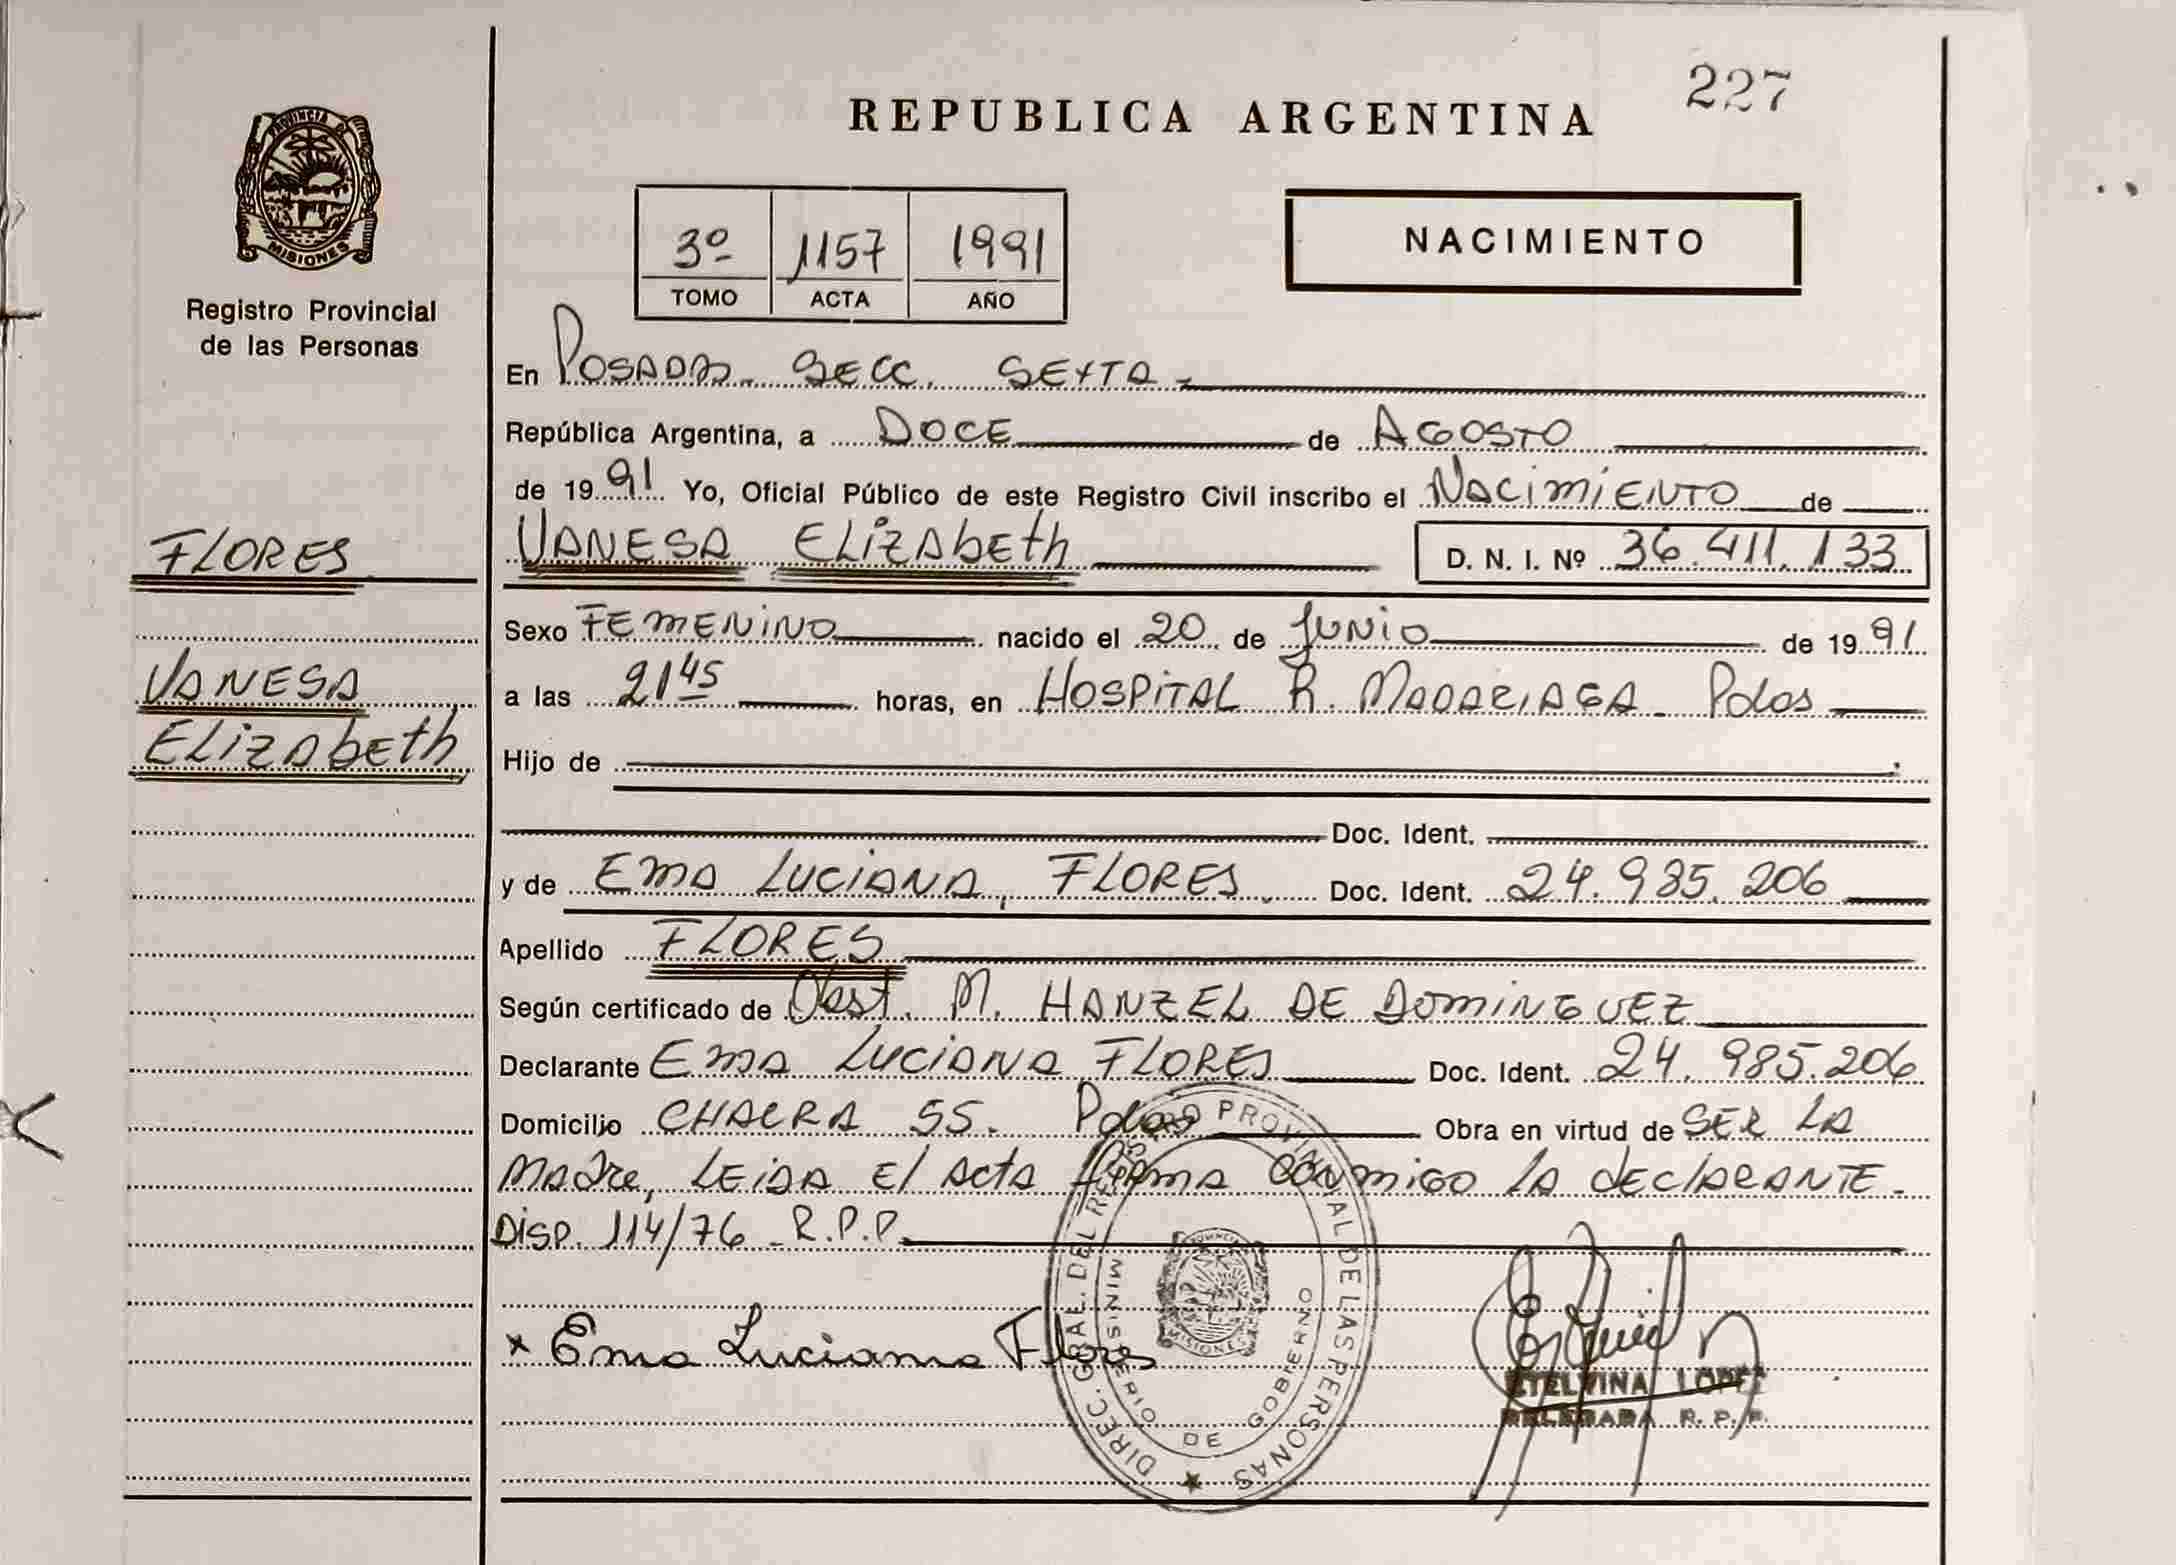 227
REPUBLICA ARGENTINA
PROVINCIA DE
MISIONES
Registro Provincial
de las Personas
3º 1157 1991
TOMO ACTA AÑO
NACIMIENTO
En Posadas Secc. Sexta
República Argentina, a Doce de Agosto
de 1991 Yo, Oficial Público de este Registro Civil inscribo el Nacimiento de
Vanesa Elizabeth D. N. I. Nº 36.411.133
FLORES
Vanesa
Elizabeth
Sexo Femenino nacido el 20 de Junio de 1991
a las 21 45 horas, en Hospital R. Madariaga Pdas
Hijo de
Doc. Ident.
y de Ema Luciana, FLORES Doc. Ident. 24.985.206
Apellido FLORES
Según certificado de Obst. M. Hanzel de Dominguez
Declarante Ema Luciana Flores Doc. Ident. 24.985.206
Domicilio Chacra 55. Pdas Obra en virtud de ser la
madre, Leida el acta firma conmigo la declarante.
Disp. 114/76 R.P.P.
x Ema Luciana Flores
DIREC. GRAL. DEL REGISTRO PROVINCIAL DE LAS PERSONAS
MINISTERIO DE GOBIERNO
MISIONES
ETELVINA LOPEZ
DELEGADA R. P. P.